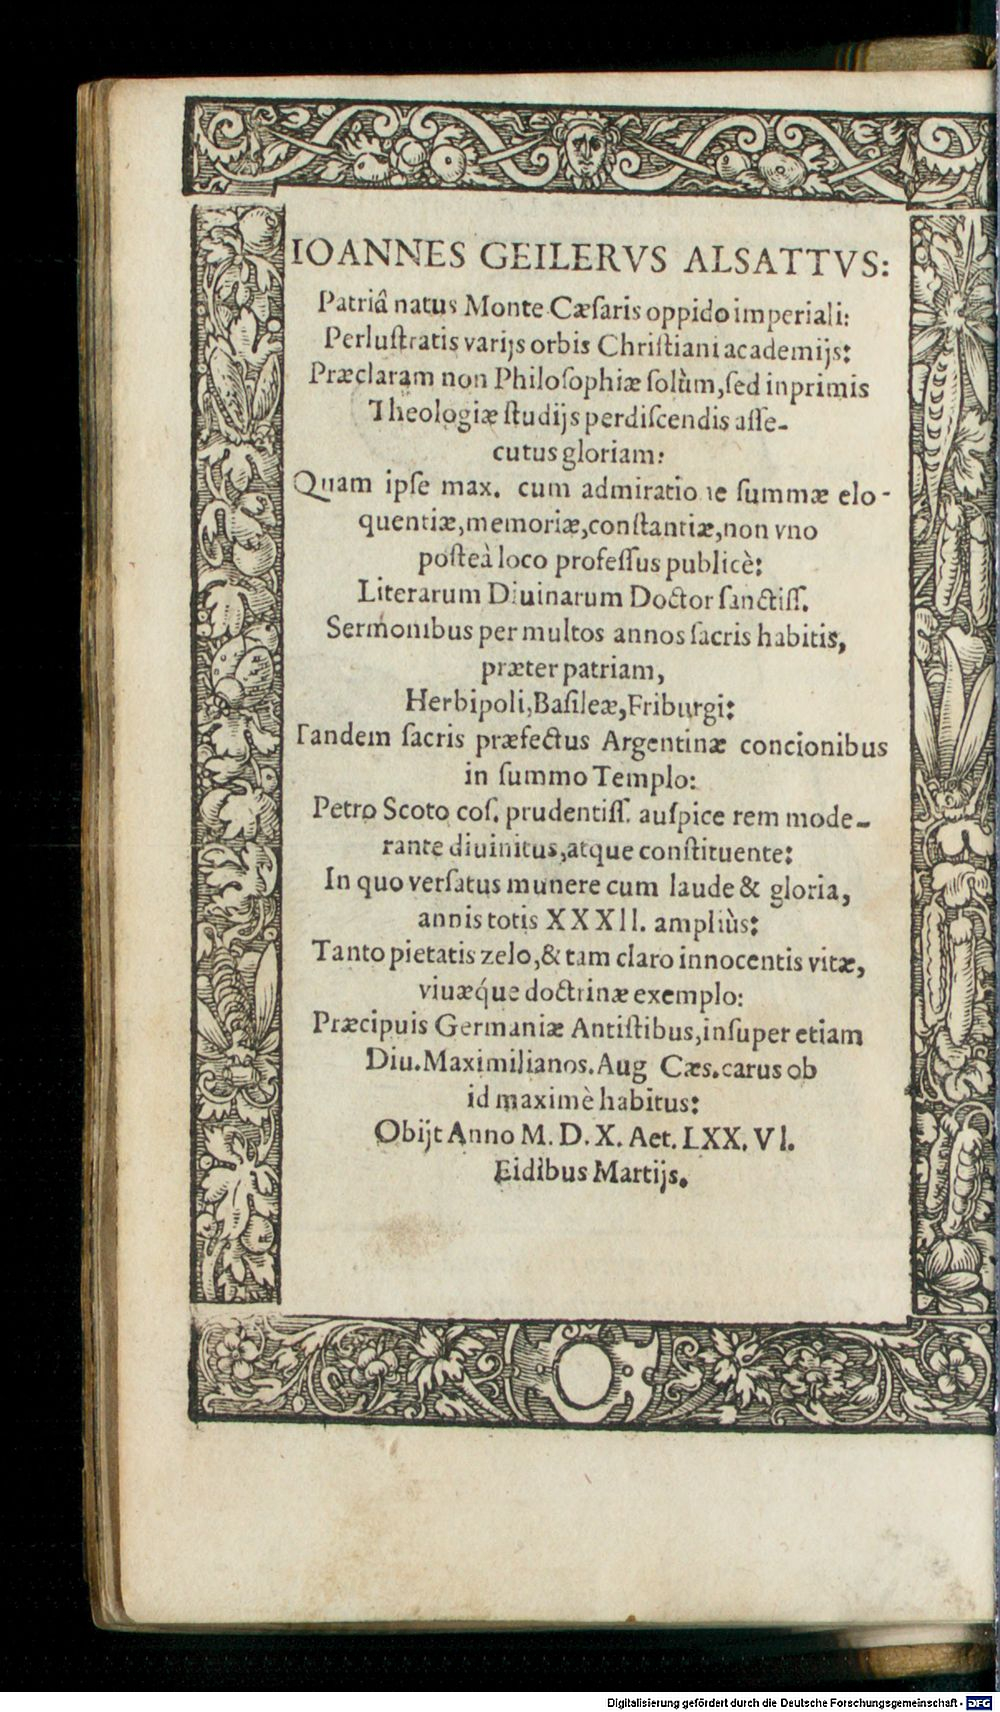 IOANNES GEILERVS ALSATTVS:
Patriâ natus Monte Cæſaris oppido imperiali:
Perluſtratis varijs orbis Chriſtiani academijs:
Præclaram non Philoſophiæ ſolùm, ſed inprimis
Theologiæ ſtudijs perdiſcendis aſſe-
cutus gloriam:
Quam ipſe max. cum admiratione ſummæ elo-
quentiæ, memoriæ, conſtantiæ, non vno
poſteà loco profeſſus publicè:
Literarum Diuinarum Doctor ſanctiſſ.
Sermonibus per multos annos ſacris habitis,
præter patriam,
Herbipoli, Baſileæ, Friburgi:
Tandem ſacris præfectus Argentinæ concionibus
in ſummo Templo:
Petro Scoto coſ. prudentiſſ. auſpice rem mode-
rante diuinitus, atque conſtituente:
In quo verſatus munere cum laude & gloria,
annis totis XXXII. ampliùs:
Tanto pietatis zelo, & tam claro innocentis vitæ,
viuæq́ue doctrinæ exemplo:
Præcipuis Germaniæ Antiſtibus, inſuper etiam
Diu. Maximilianos. Aug Cæs. carus ob
id maximè habitus:
Obijt Anno M. D. X. Aet. LXX. VI.
Eidibus Martijs.
Digitalisierung gefördert durch die Deutsche Forschungsgemeinschaft - DFG